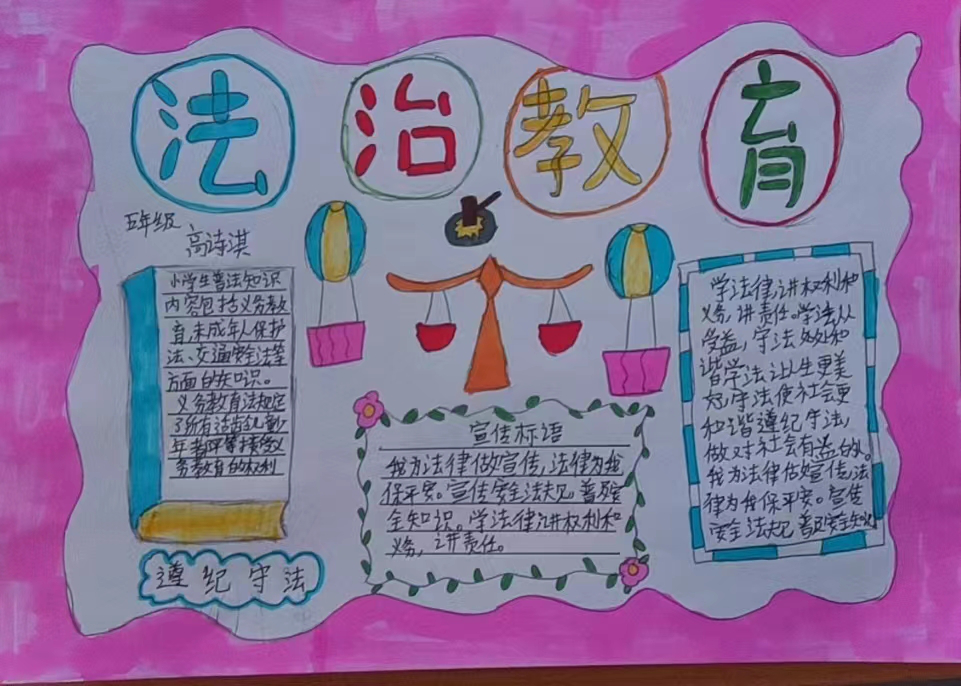 法治教育
五年级
高诗淇
小学生普法知识
内容包括义务教
育,未成年人保护
法、交通安全法等
方面的知识。
义务教育法规定
了所有适龄儿童少
年都平等接受义
务教育的权利
遵纪守法
宣传标语
我为法律做宣传,法律为我
保平安。宣传安全法规。普及安
全知识。学法律讲权利和
义务,讲责任。
学法律,讲权利和
义务,讲责任。学法人人
受益,守法处处和
谐学法让人生更美
好,守法使社会更
和谐遵纪守法,
做对社会有益的人。
我为法律做宣传,法
律为我保平安。宣传
安全法规 普及安全知识